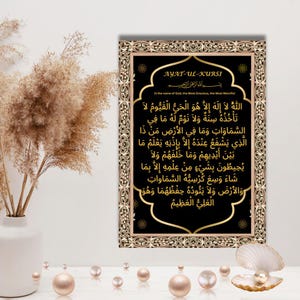 AYAT-UL-KURSI
In the name of God, the Most Gracious, the Most Merciful
اللَّهُ لَا إِلَٰهَ إِلَّا هُوَ الْحَيُّ الْقَيُّومُ لَا
تَأْخُذُهُ سِنَةٌ وَلَا نَوْمٌ لَهُ مَا فِي
السَّمَاوَاتِ وَمَا فِي الْأَرْضِ مَنْ ذَا
الَّذِي يَشْفَعُ عِنْدَهُ إِلَّا بِإِذْنِهِ يَعْلَمُ مَا
بَيْنَ أَيْدِيهِمْ وَمَا خَلْفَهُمْ وَلَا
يُحِيطُونَ بِشَيْءٍ مِنْ عِلْمِهِ إِلَّا بِمَا
شَاءَ وَسِعَ كُرْسِيُّهُ السَّمَاوَاتِ
وَالْأَرْضَ وَلَا يَئُودُهُ حِفْظُهُمَا وَهُوَ
الْعَلِيُّ الْعَظِيمُ